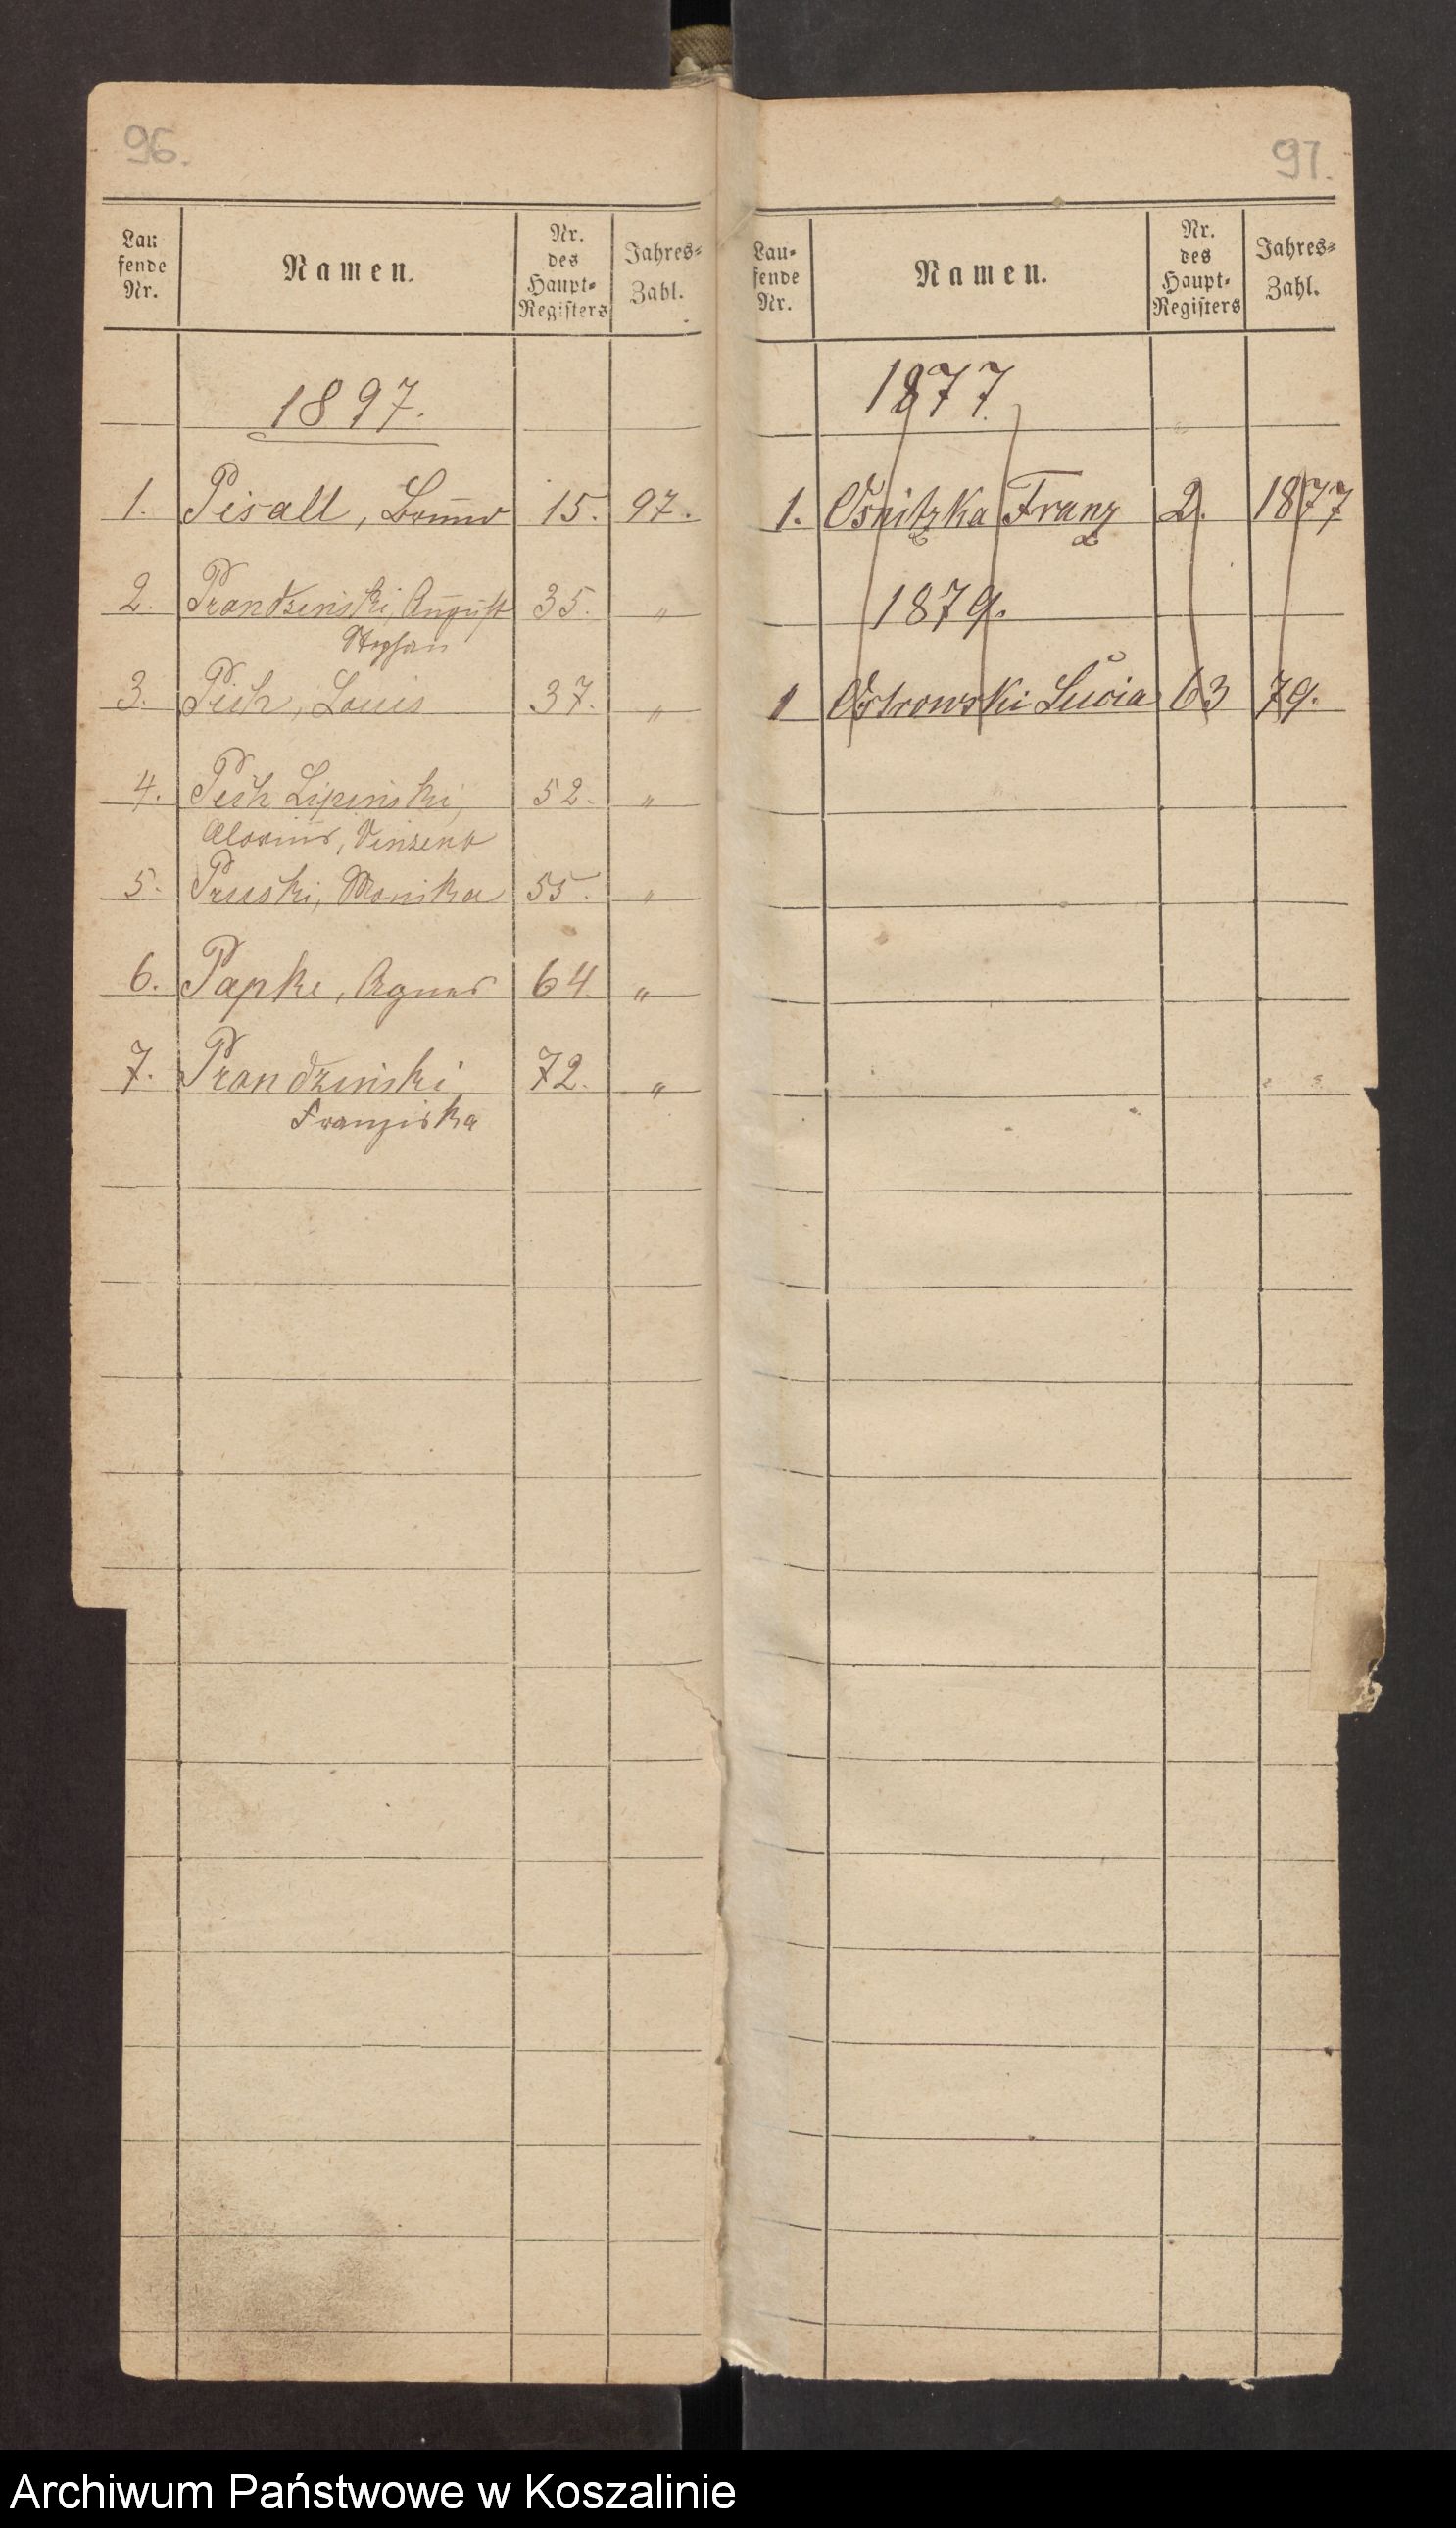 96.
Lau
fende
Nr.
Namen.
Nr.
des
Haupt-
Registers
Jahres-
Zahl.
1897.
1. Pisall, Bruno 15. 97.
2. Prondzinski, August 35. "
Stephan
3. Pich, Louis 37. "
4. Pich Lipinski, 52. "
Aloisius, Vinzent
5. Pruski, Monika 55. "
6. Papke, Agnes 64. "
7. Prondzinski 72. "
Franziska
97.
Lau-
fende
Nr.
Namen.
Nr.
des
Haupt-
Registers
Jahres-
Zahl.
1877
1. Osnitzka Franz 2. 1877
1879.
1 Ostrowski Lucia 63 79.
Archiwum Państwowe w Koszalinie